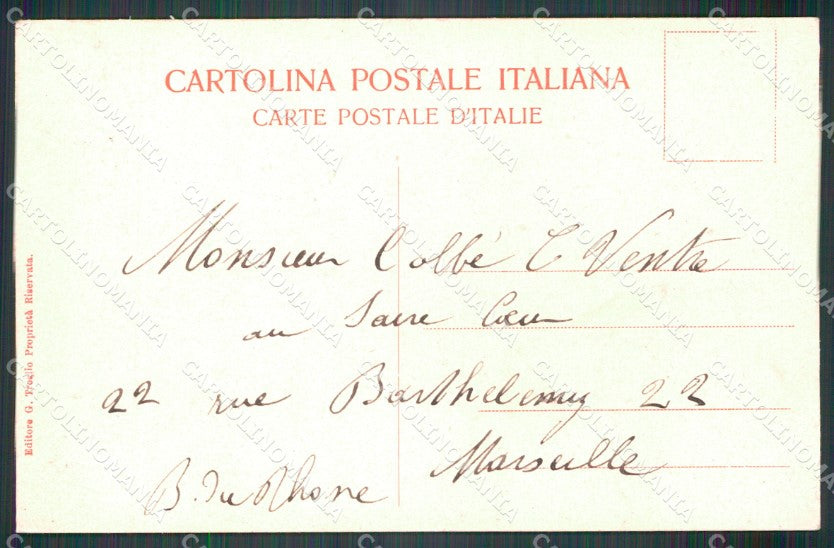 CARTOLINA POSTALE ITALIANA
CARTE POSTALE D'ITALIE
Monsieur l'abbé C Ventre
au Sacré Cœur
22 rue Barthelemy 22
Marseille
B. du Rhone
Editore G. Troglio Proprietà Riservata.
CARTOLINOMANIA